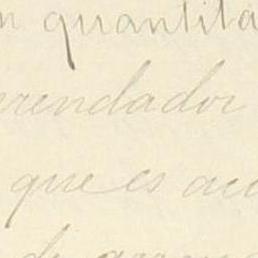 n quantita
rrendador
que es au
de arren